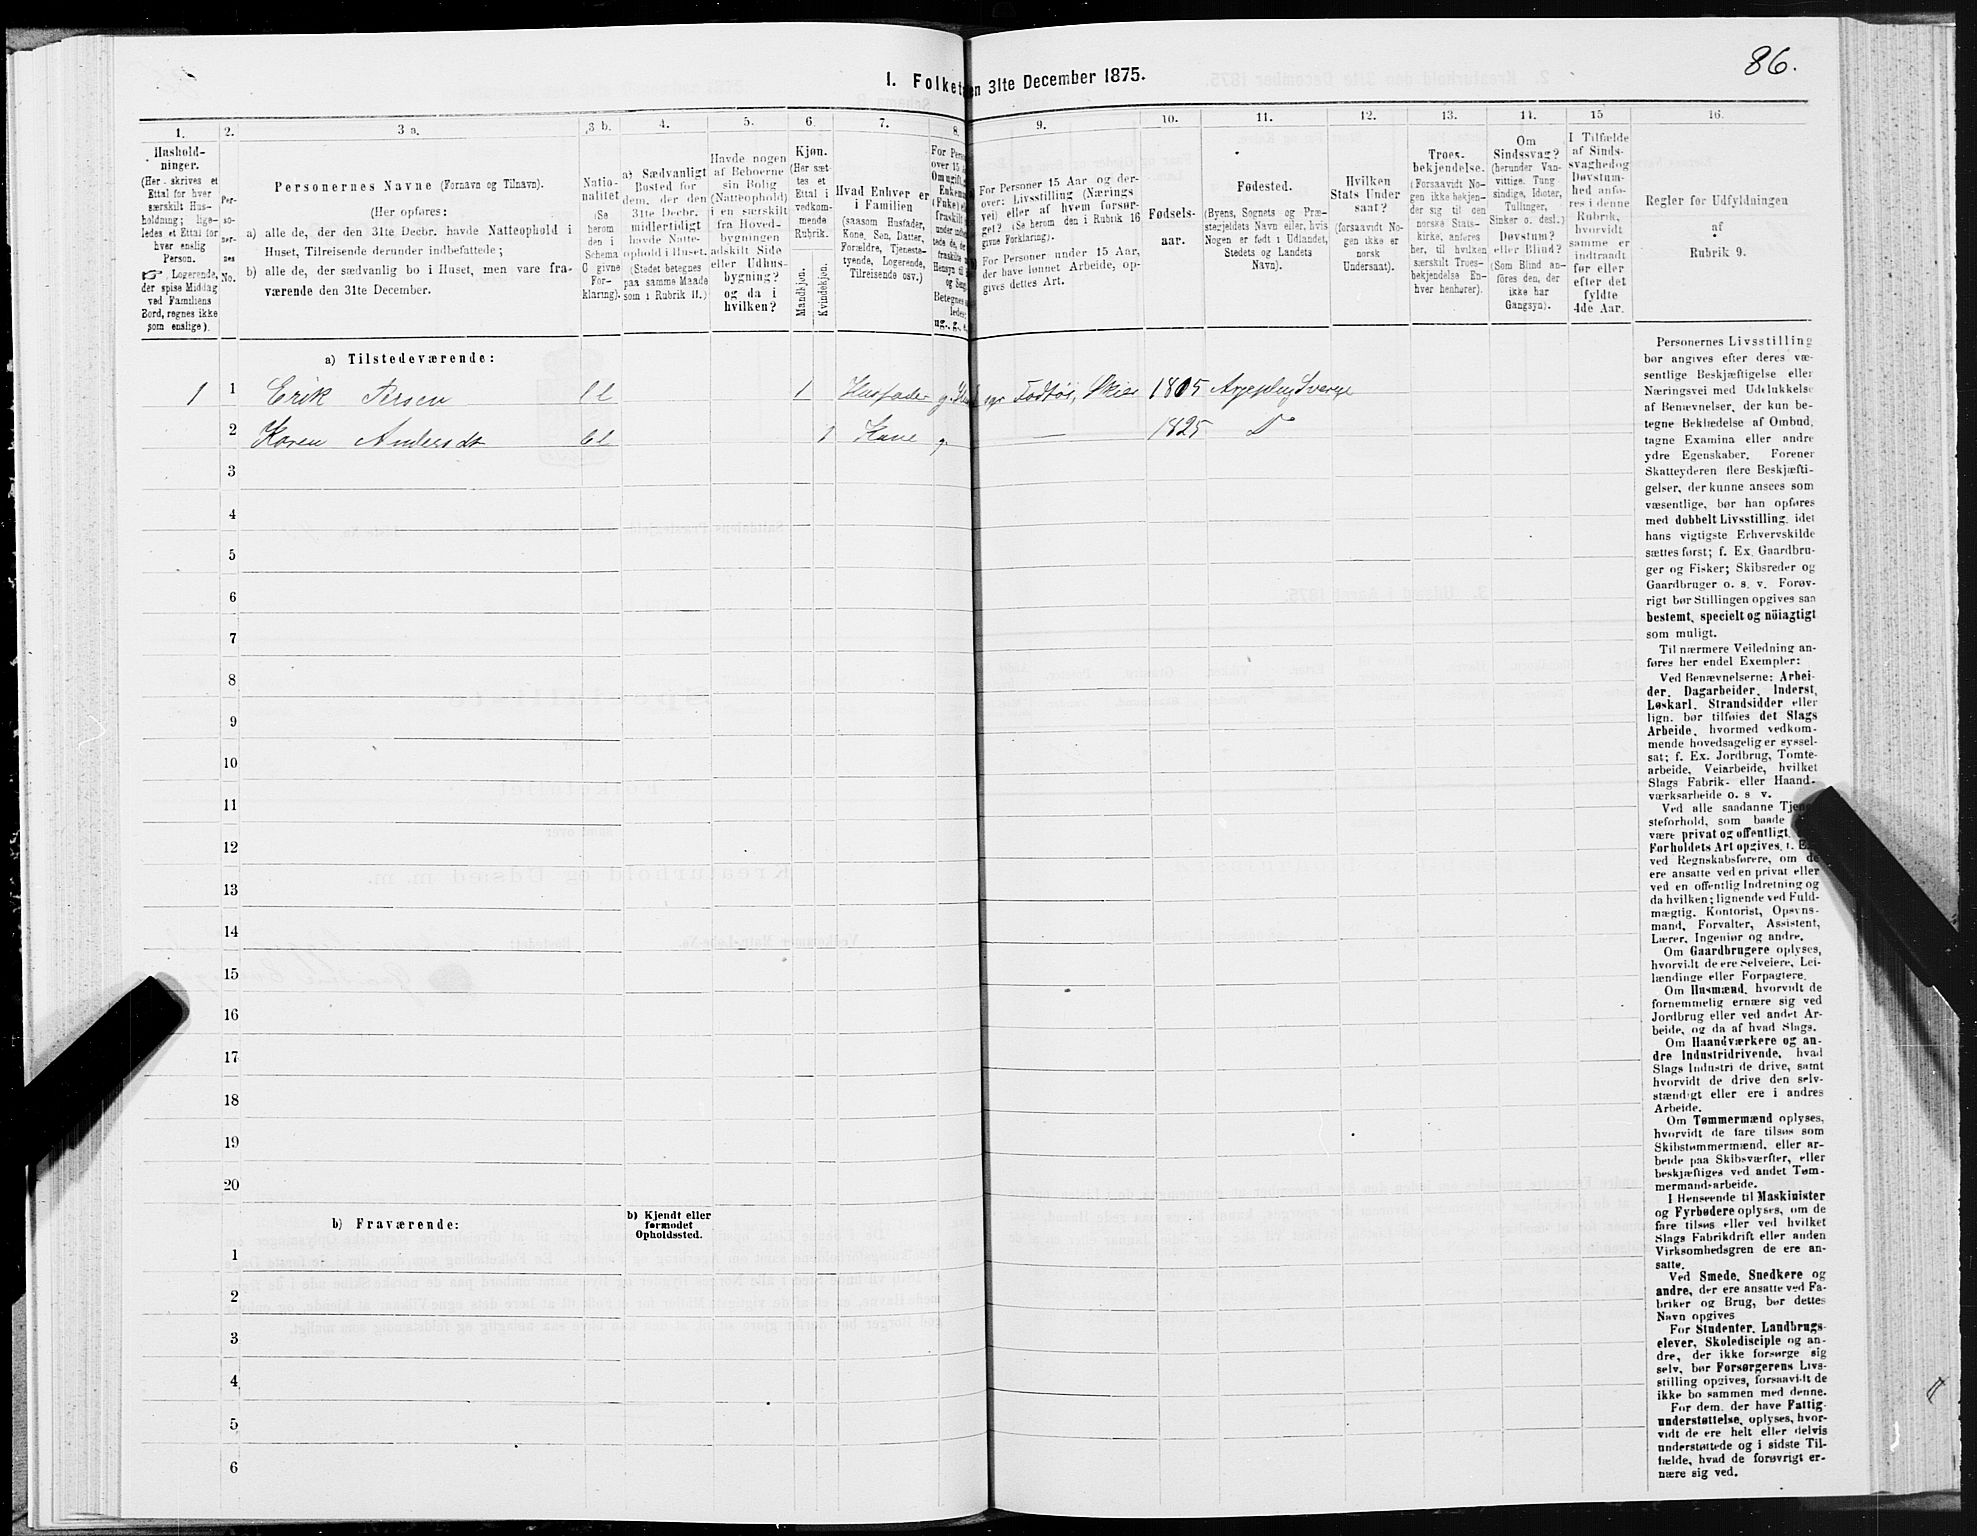 86.
1. Folket en 31te December 1875.
1. 2. 3 a. 3 b. 4. 5. 6. 7. 8. 9. 10. 11. 12. 13. 14. 15 16.
Hushold-
ninger.
(Her skrives et
Ettal for hver
særskilt Hus-
holdning; lige-
ledes et Ettal for
hver enslig
Person.
☞ Logerende,
der spise Middag
ved Familiens
Bord, regnes ikke
som enslige).
Per-
so-
ner-
nes
No.
Personernes Navne (Fornavn og Tilnavn).
(Her opføres:
a) alle de, der den 31te Decbr. havde Natteophold i
Huset, Tilreisende derunder indbefattede;
b) alle de, der sædvanlig bo i Huset, men vare fra-
værende den 31te December.
Natio-
nalitet
(Se
herom
den i
Schema
G givne
For-
klaring).
a) Sædvanligt
Bosted for
dem, der den
31te Decbr.
midlertidigt
havde Natte-
ophold i Huset.
(Stedet betegnes
paa samme Maade
som i Rubrik 11.)
Havde nogen
af Beboerne
sin Bolig
(Natteophold)
i en særskilt
fra Hoved-
bygningen
adskilt Side
eller Udhus-
bygning?
og da i
hvilken?
Kjøn.
(Her sæt-
tes et
Ettal i
vedkom-
mende
Rubrik.
Mandkjøn.
Kvindekjøn.
Hvad Enhver er
i Familien
(saasom Husfader,
Kone, Søn, Datter,
Forældre, Tjeneste-
tyende, Logerende,
Tilreisende osv.)
For Perso
over 15 A
Om ugift,
Enkema
(Enke) e
fraskilt
For Personer 15 Aar og der-
over: Livsstilling (Nærings
vei) eller af hvem forsør-
get? (Se herom den i Rubrik 16
givne Forklaring).
For Personer under 15 Aar,
der have lønnet Arbeide, op-
gives dettes Art.
Fødsels-
aar.
Fødested.
(Byens, Sognets og Præ-
stegjeldets Navn eller, hvis
Nogen er født i Udlandet,
Stedets og Landets
Navn).
Hvilken
Stats Under
saat?
(forsaavidt No-
gen ikke er
norsk
Undersaat).
Troes-
bekjendelse.
(Forsaavidt No-
gen ikke bekjen-
der sig til den
norske Stats-
kirke, anføres
her, til hvilken
særskilt Troes-
bekjendelse En-
hver henhører).
Om
Sindssvag?
(herunder Van-
vittige, Tung
sindige, Idioter,
Tullinger,
Sinker o. desl.)
Døvstum?
eller Blind?
(Som Blind an-
føres den, der
ikke har
Gangsyn).
I Tilfælde
af Sinds-
svaghedog
Døvstum-
hed anfø-
res i denne
Rubrik,
hvorvidt
samme er
indtraadt
før eller
efter det
fyldte
4de Aar.
Regler for Udfyldningen
af
Rubrik 9.
a) Tilstedeværende:
1 1 Erik Persen 1 Husfader g. 1805 Sverge
2 Karen Andersdt 1 Kone g. — 1825 D
3
4
5
6
7
8
9
10
11
12
13
14
15
16
17
18
19
20
b) Fraværende:
b) Kjendt eller
formodet
Opholdssted.
1
2
3
4
5
6
Personernes Livsstilling
bør angives efter deres væ-
sentlige Beskjæftigelse eller
Næringsvei med Udelukkelse
af Benævnelser, der kun be-
tegne Beklædelse af Ombud,
tagne Examina eller andre
ydre Egenskaber. Forener
Skatteyderen flere Beskjæfti-
gelser, der kunne ansees som
væsentlige, bør han opføres
med dobbelt Livsstilling, idet
hans vigtigste Erhvervskilde
sættes først; f. Ex. Gaardbru-
ger og Fisker; Skibsreder og
Gaardbruger o. s. v. Forøv-
rigt bør Stillingen opgives saa
bestemt, specielt og nöiagtigt
som muligt.
Til nærmere Veiledning an-
føres her endel Exempler:
Ved Benævnelserne: Arbei-
der, Dagarbeider, Inderst,
Løskarl, Strandsidder eller
lign. bør tilføies det Slags
Arbeide, hvormed vedkom-
mende hovedsagelig er syssel-
sat; f. Ex. Jordbrug, Tomte-
arbeide, Veiarbeide, hvilket
Slags Fabrik- eller Haand-
værksarbeide o. s v.
Ved alle saadanne Tjene
steforhold, som baade
være privat og offentligt,
Forholdets Art opgives, f. E
ved Regnskabsførere, om de
ere ansatte ved en privat eller
ved en offentlig Indretning og
da hvilken; lignende ved Fuld-
mægtig, Kontorist, Opsyns-
mand, Forvalter, Assistent,
Lærer, Ingeniør og andre.
Om Gaardbrugere oplyses,
hvorvidt de ere Selveiere, Lei-
lændinge eller Forpagtere.
Om Husmænd, hvorvidt de
fornemmelig ernære sig ved
Jordbrug eller ved andet Ar-
beide, og da af hvad Slags.
Om Haandværkere og an-
dre Industridrivende, hvad
Slags Industri de drive, samt
hvorvidt de drive den selv-
stændigt eller ere i andres
Arbeide.
Om Tømmermænd oplyses,
hvorvidt de fare tilsøs som
Skibstømmermænd, eller ar-
beide paa Skibsværfter, eller
beskjæftiges ved andet Tøm-
mermandsarbeide.
I Henseende til Maskinister
og Fyrbødere oplyses, om de
fare tilsøs eller ved hvilket
Slags Fabrikdrift eller anden
Virksomhedsgren de ere an-
satte.
Ved Smede, Snedkere og
andre, der ere ansatte ved Fa-
briker og Brug, bør dettes
Navn opgives
For Studenter, Landbrugs-
elever, Skoledisciple og an-
dre, der ikke forsørge sig
selv, bør Forsørgerens Livs-
stilling opgives, forsaavidt de
ikke bo sammen med denne.
For dem, der have Fattig-
understøttelse, oplyses, hvor-
vidt de ere helt eller delvis
understøttede og i sidste Til-
fælde, hvad de forøvrigt er-
nære sig ved.